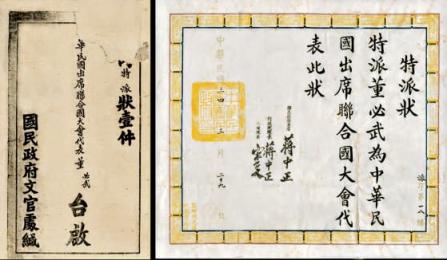 特派狀壹件
華民國出席聯合國大會代表董必武
台啟
國民政府文官處緘
特派狀
特派董必武為中華民
國出席聯合國大會代
表此狀
蔣中正
蔣中正
中華民國